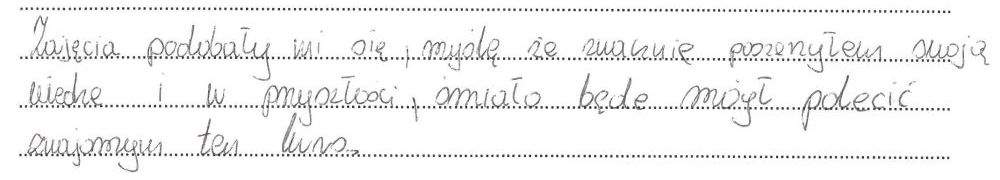 Zajęcia podobały mi się, myślę że znacznie poszerzyłem swoją
wiedzę i w przyszłości, śmiało będe mógł polecić
znajomym ten kurs.